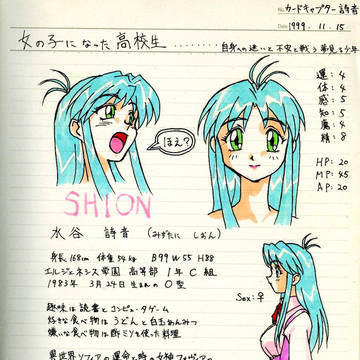 No. カードキャプター詩音
DATE 1999. 11. 15
女の子になった高校生 ‥‥‥‥ 自身への迷いと不安と戦う夢見る少年
運：4
体：4
感：5
知：5
魔：4
精：8
HP：20
MP：45
AP：20
ほえ？
SHION
水谷 詩音 (みずたに しおん)
身長 168cm 体重 54kg B99 W55 H88
エルジェネシス学園 高等部 1年 C組
1983年 3月24日 生まれの O型
Sex：♀
趣味は 読書と コンピュータゲーム
好きな食べ物は うどんと 白玉あんみつ
嫌いな食べ物は 酢ミソを使った料理
異世界ソフィアの運命と時の女神フォヴィアの